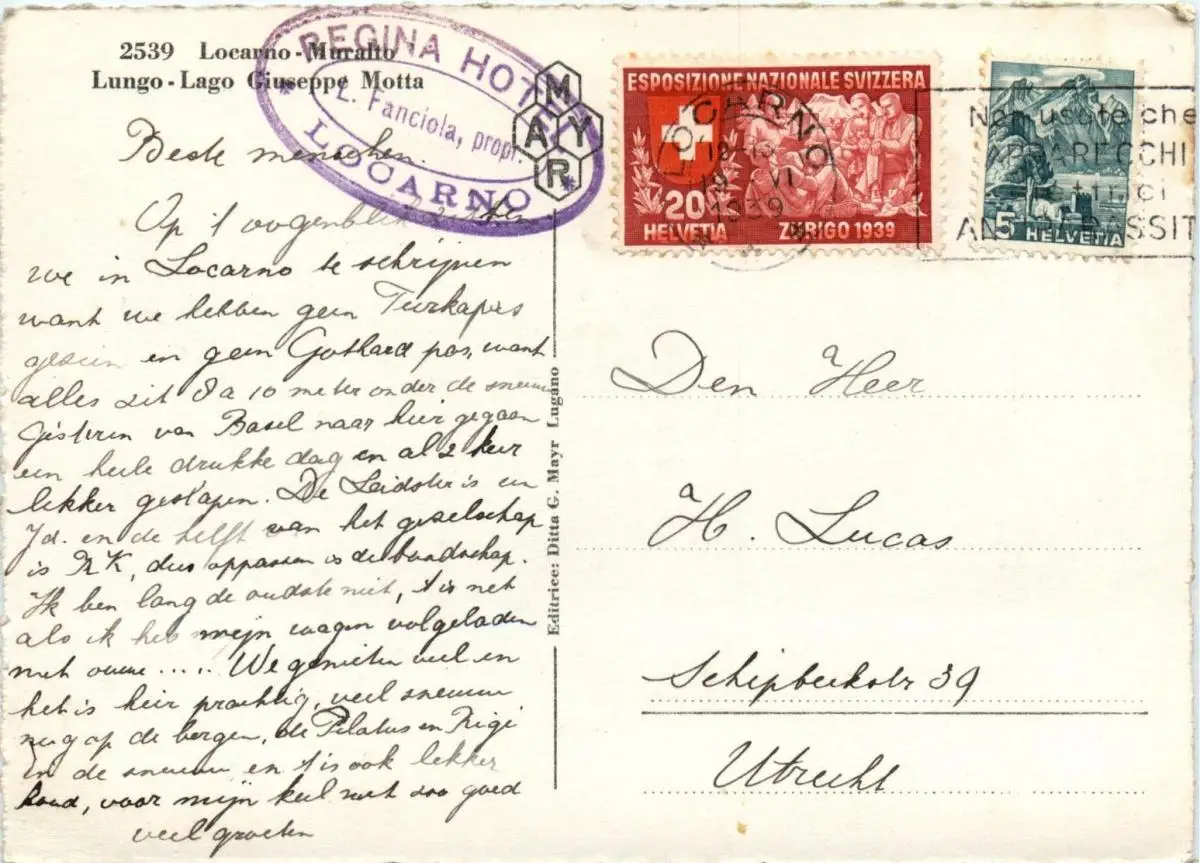 2539 Locarno - Muralto
Lungo - Lago Giuseppe Motta
REGINA HOTEL
L. Fanciola, propr.
LOCARNO
MAYR
ESPOSIZIONE NAZIONALE SVIZZERA
20
HELVETIA ZURIGO 1939
5 HELVETIA
LOCARNO
VI
1939
Non usate che
APPARECCHI
ANTIPARASSIT
Beste menschen.
Op 't oogenblik zitten
we in Locarno te schrijven
want we hebben geen Furkapas
gezien en geen Gothard pas, want
alles zit 8 a 10 meter onder de sneeuw
Gisteren van Basel naar hier gegaan
een heele drukke dag en al 2 keer
lekker geslapen. De Leidster is een
Jd. en de helft van het geselschap
is RK, dus oppassen is de boodschap.
Ik ben lang de oudste niet, 't is net
als ik heb mijn wagen volgeladen
met ouwe ..... We genieten veel en
het is hier prachtig, veel sneeuw
nog op de bergen, de Pilatus en Rigi
in de sneeuw en 't is ook lekker
koud, voor mijn keel niet zoo goed
veel groeten
Editrice: Ditta G. Mayr Lugano
Den Heer
H. Lucas
Schipbeekstr 39
Utrecht